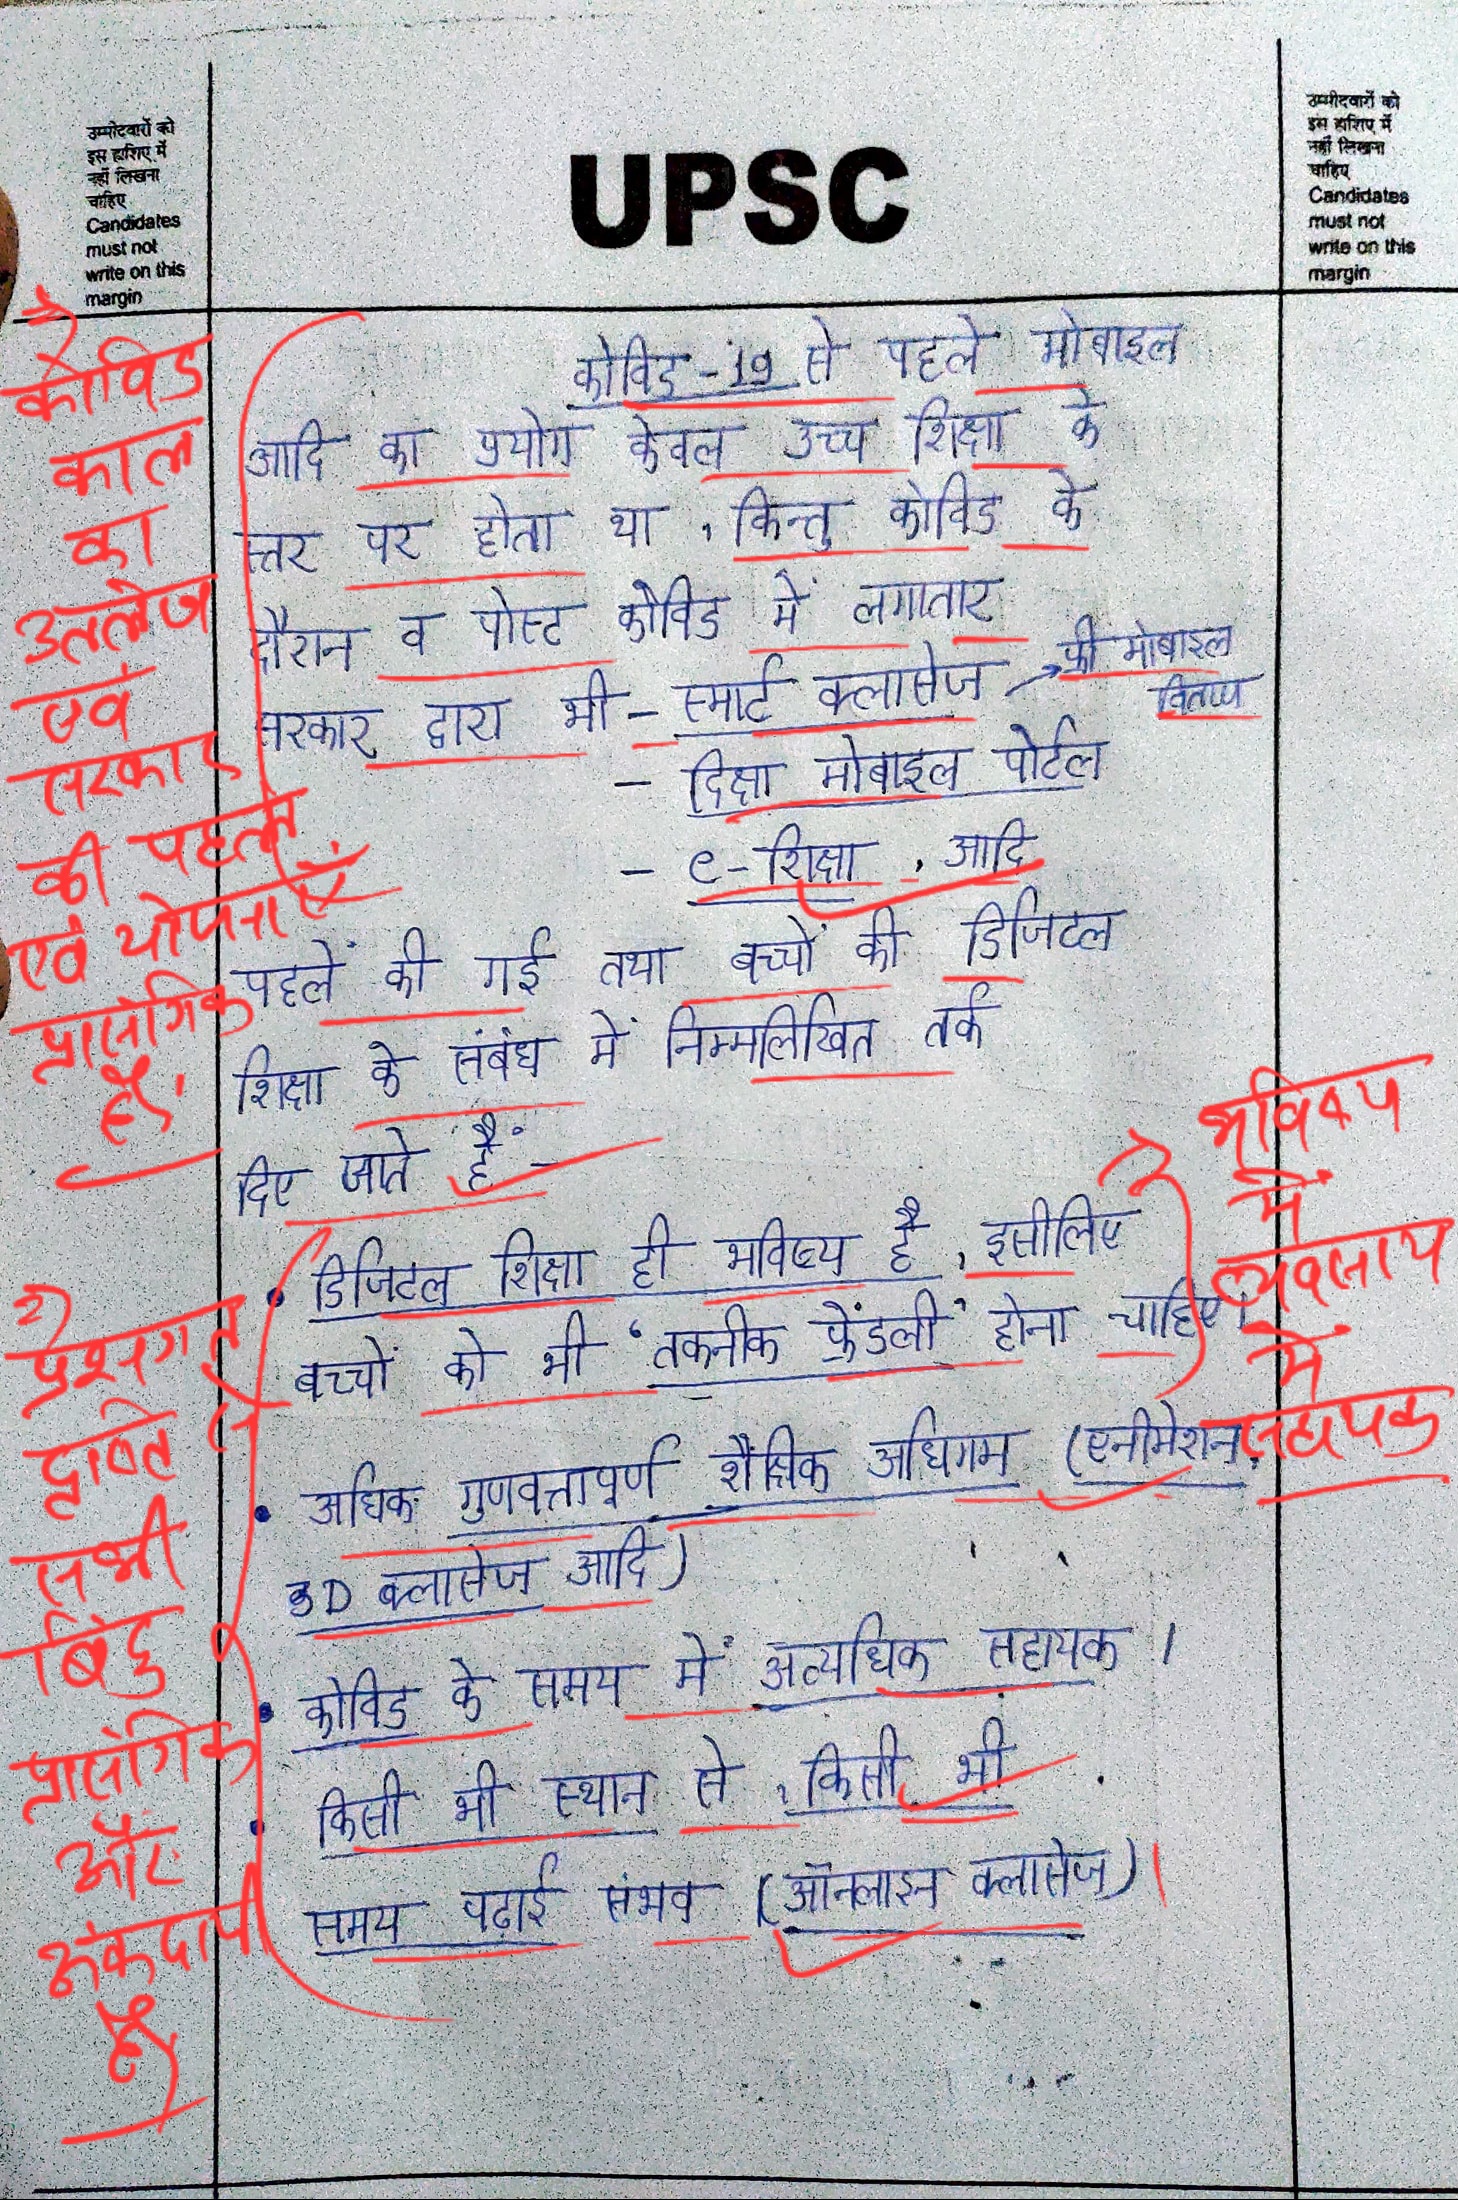 उम्मीदवारों को
इस हाशिए में
नहीं लिखना
चाहिए
Candidates
must not
write on this
margin
UPSC
उम्मीदवारों को
इस हाशिए में
नहीं लिखना
चाहिए
Candidates
must not
write on this
margin
कोविड-19 से पहले मोबाइल
आदि का प्रयोग केवल उच्च शिक्षा के
स्तर पर होता था, किन्तु कोविड के
दौरान व पोस्ट कोविड में लगातार
सरकार द्वारा भी - स्मार्ट क्लासेज → फ्री मोबाइल
वितरण
- दिक्षा मोबाइल पोर्टल
- e-शिक्षा, आदि
पहलें की गई तथा बच्चों की डिजिटल
शिक्षा के संबंध में निम्मलिखित तर्क
दिए जाते हैं:-
• डिजिटल शिक्षा ही भविष्य है, इसीलिए
बच्चों को भी 'तकनीक फ्रेंडली' होना चाहिए।
• अधिक गुणवत्तापूर्ण शैक्षिक अधिगम (एनीमेशन,
3D क्लासेज आदि)
• कोविड के समय में अत्यधिक सहायक।
• किसी भी स्थान से, किसी भी
समय पढ़ाई संभव (ऑनलाइन क्लासेज)।
कोविड
काल
का
उल्लेख
एवं
सरकार
की पहलें
एवं योजनाएं
प्रासंगिक
हैं।
भविष्य
में
व्यवसाय
में
सहायक
2)
प्रश्नगत
दृष्टि से
सभी
बिंदु
प्रासंगिक
और
अंकदायी
हैं)